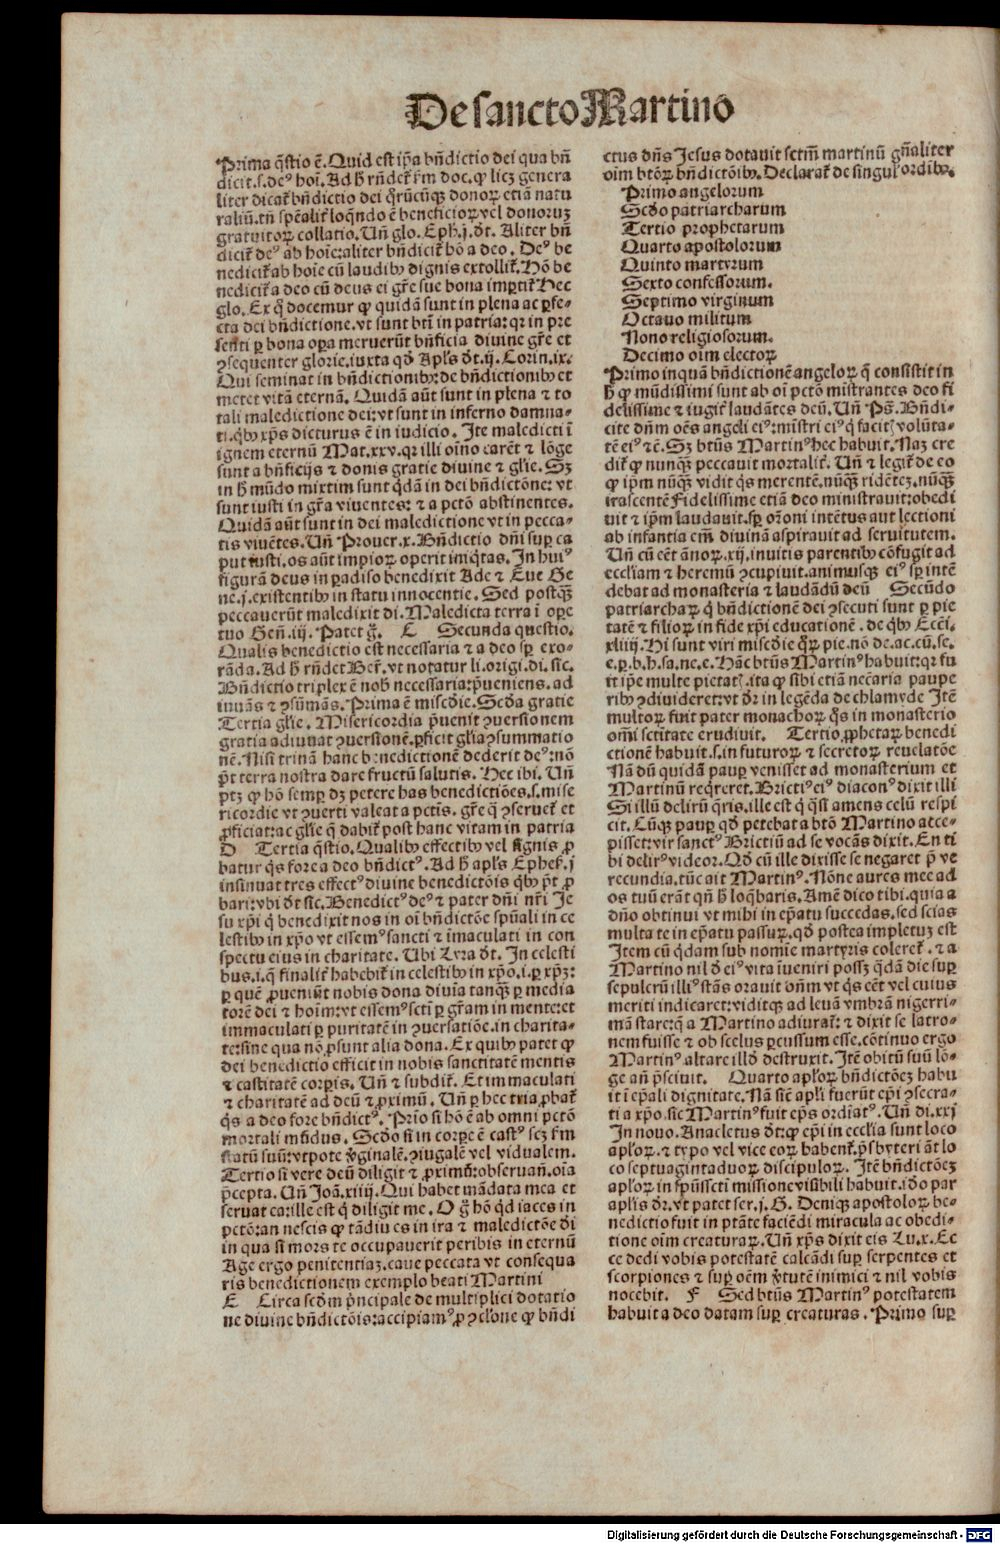 De sancto Martino
Prima q̄stio ē. Quid est ip̄a bn̄dictio dei qua bn̄
dicit.s.deꝰ hoī. Ad h̄ rn̄det̄ ẜm doc. ꝙ licꝫ genera
liter dicat̄ bn̄dictio dei q̄rūcūqꝫ donoꝝ etiā natu
raliū.tn̄ sp̄ealit̄ loq̄ndo ē beneficioꝝ vel donoruꝫ
gratuitoꝝ collatio. Un̄ glo. Eph.j. d̄t. Aliter bn̄
dicit̄ deꝰ ab hoīe:aliter bn̄dicit̄ hō a deo. Deꝰ be
nedicit̄ ab hoīe cū laudibꝰ dignis extollit̄. Hō be
nedicit̄ a deo cū deus ei gr̄e sue bona imꝑtit̄ Hec
glo. Ex q̄ docemur ꝙ quidā sunt in plena ac ꝑfe-
cta dei bn̄dictione.vt sunt btī in patria:qr in pre
senti ꝑ bona oꝑa meruerūt bn̄ficia divine gr̄e et
ꝯsequenter glorie.iuxta qd̄ Apl̄s d̄t.ij. Corin.ix.
Qui seminat in bn̄dictionibꝰ:de bn̄dictionibꝰ et
metet vitā eternā. Quidā aūt sunt in plena ⁊ to
tali maledictione dei:vt sunt in inferno damna-
ti.q̄bꝰ xp̄s dicturus ē in iudicio. Ite maledicti ī
ignem eternū Mat.xxv.qr illi oīno carēt ⁊ lōge
sunt a bn̄ficijs ⁊ donis gratie divine ⁊ gl̄ie. Sꝫ
in h̄ mūdo mixtim sunt q̄dā in dei bn̄dictōne: vt
sunt iusti in gr̄a viventes: ⁊ a pctō abstinentes.
Quidā aūt sunt in dei maledictione vt in pecca-
tis viuētes. Un̄ Prouer.x. Bn̄dictio dn̄i suꝑ ca
put iusti.os aūt impioꝝ operit iniq̄tas. In huiꝰ
figurā deus in ꝑadiso benedixit Ade ⁊ Eue Ge
ne.j.existentibꝰ in statu innocentie. Sed postqꝫ
peccauerūt maledixit di. Maledicta terra ī oꝑe
tuo Gen̄.iij. Patet ḡ. C Secunda questio.
Qualis benedictio est necessaria ⁊ a deo sꝑ exo-
rāda. Ad h̄ rn̄det Ber̄. vt notatur li.origi.di. sic.
Bn̄dictio triplex ē nob̄ necessaria:p̄ueniens. ad
iuuās ⁊ ꝯsūmās. Prima ē miscd̄ie. Scd̄a gratie
Tertia gl̄ie. Misericordia p̄uenit ꝯuersionem
gratia adiuuat ꝯuersionē.ꝑficit gl̄ia ꝯsummatio
nē. Nisi trinā hanc benedictionē dederit deꝰ:nō
p̄t terra nostra dare fructū salutis. Hec ibi. Un̄
ptꝫ ꝙ hō semꝑ dꝫ petere has benedictiōes.s.mise
ricordie vt ꝯuerti valeat a pctīs. gr̄e q̄ ꝯseruet̄ et
ꝓficiat:ac gl̄ie q̄ dabit̄ post hanc vitam in patria
D Tertia q̄stio. Qualibꝰ effectibꝰ vel signis ꝓ
batur q̄s fore a deo bn̄dictꝰ. Ad h̄ apl̄s Ephes. j
insinuat tres effectꝰ divine benedictōis q̄bꝰ p̄t ꝓ
bari:vbi d̄t sic. Benedictꝰ deꝰ ⁊ pater dn̄i nr̄i Je
su xp̄i q̄ benedixit nos in oī bn̄dictōe sp̄uali in ce
lestibꝰ in xp̄o vt essemꝰ sancti ⁊ īmaculati in con
spectu eius in charitate. Ubi Lyra d̄t. In celesti
bus.i.q̄ finalit̄ habebit̄ in celestibꝰ in xp̄o.i.ꝑ xp̄ꝫ:
ꝑ quē ꝓueniūt nobis dona diuīa tanqꝫ ꝑ media
torē dei ⁊ hoīm:vt essemꝰ sctī ꝑ gr̄am in mente:et
immaculati ꝑ puritatē in ꝯuersatiōe.in charita-
te:sine qua nō ꝓsunt alia dona. Ex quibꝰ patet ꝙ
dei benedictio efficit in nobis sanctitatē mentis
⁊ castitatē corꝑis. Un̄ ⁊ subdit̄. Et immaculati
⁊ charitatē ad deū ⁊ ꝓximū. Un̄ ꝑ hec tria ꝓbat̄
q̄s a deo fore bn̄dictꝰ. Prīo si hō ē ab omni pctō
mortali mūdus. Scd̄o si in corꝑe ē castꝰ scꝫ ẜm
statū suū:vtpote v̄ginalē:ꝯiugalē vel vidualem.
Tertio si vere deū diligit ⁊ ꝓximū:obseruan̄.oīa
p̄cepta. Un̄ Joā.xiiij. Qui habet mādata mea et
seruat ea:ille est q̄ diligit me. O ḡ hō q̄d iaces in
pctō:an nescis ꝙ tādiu es in ira ⁊ maledictōe d̄i
in qua si mors te occupauerit peribis in eternū
Age ergo penitentiaꝫ.caue peccata vt consequa
ris benedictionem exemplo beati Martini
E Circa scd̄m p̄ncipale de multiplici dotatio
ne diuine bn̄dictōis:accipiamꝰ ꝓ ꝯcl̄one ꝙ bn̄di
ctus dn̄s Jesus dotauit sctm̄ martinū gn̄aliter
oīm btōꝝ bn̄dictōibꝰ. Declarat̄ de singul̓ ordibꝰ.
Primo angelorum
Scd̄o patriarcharum
Tertio prophetarum
Quarto apostolorum
Quinto martyrum
Sexto confessorum.
Septimo virginum
Octauo militum
Nono religiosorum.
Decimo oīm electoꝝ
Primo inquā bn̄dictionē angeloꝝ q̄ consistit in
h̄ ꝙ mūdissimi sunt ab oī pctō mīstrantes deo fi
delissime ⁊ iugit̄ laudātes deū. Un̄ Ps̄. Bn̄di-
cite dn̄m oēs angeli eiꝰ:mīstri eiꝰ q̄ facit; volūta-
tē eiꝰ ⁊c̄. Sꝫ btūs Martinꝰ hec habuit. Naꝫ cre
dit̄ ꝙ nunqꝫ peccauit mortalit̄. Un̄ ⁊ legit̄ de eo
ꝙ ip̄m nūqꝫ vidit q̄s merentē.nūqꝫ ridēteꝫ.nūqꝫ
irascentē Fidelissime etiā deo ministrauit:obedi
uit ⁊ ip̄m laudauit.sꝑ orōni intētus aut lectioni
ab infantia em̄ diuinā aspirauit ad seruitutem.
Un̄ cū eēt ānoꝝ.xij.inuitis parentibꝰ cōfugit ad
eccl̄iam ⁊ heremū ꝯcupiuit.animusqꝫ eiꝰ sꝑ intē
debat ad monasteria ⁊ laudādū deū Secūdo
patriarchaꝝ q̄ bn̄dictionē dei ꝯsecuti sunt ꝑ pie
tatē ⁊ filioꝝ in fide xp̄i educationē. de q̄bꝰ Ecci.
xliiij. Hi sunt viri miscd̄ie q̄ꝝ pie.nō de.ac.cū.se.
e.ꝑ.b.h.sa.ne.e. Hāc btūs Martinꝰ habuit:qr fu
it ip̄e multe pietat;.ita ꝙ sibi etiā necāria paupe
ribꝰ ꝯdiuideret:vt d̄r in legēda de chlamyde Itē
multoꝝ fuit pater monachoꝝ q̄s in monasterio
om̄i sctītate erudiuit. Tertio ꝓphetaꝝ benedi
ctionē habuit.s.in futuroꝝ ⁊ secretoꝝ reuelatōe
Nā dū quidā pauꝑ venisset ad monasterium et
Martinū req̄reret. Brictiꝰ eiꝰ diaconꝰ dixit illi
Si illū delirū q̄ris.ille est q̄ q̄si amens celū respi
cit. Cūqꝫ pauꝑ qd̄ petebat a btō Martino acce-
pisset:vir sanctꝰ Brictiū ad se vocās dixit. En ti
bi delirꝰ videor. Qd̄ cū ille dixisse se negaret p̄ ve
recundia.tūc ait Martinꝰ. Nōne aures mee ad
os tuū erāt qn̄ h̄ loq̄baris. Amē dico tibi.quia a
dn̄o obtinui vt mihi in ep̄atu succedas.sed scias
multa te in ep̄atu passuꝝ.qd̄ postea impletuꝫ est
Item cū q̄dam sub nomīe martyris coleret̄. ⁊ a
Martino nil d̄ eiꝰ vita īueniri possꝫ q̄dā die suꝑ
sepulcrū illiꝰ stās orauit dn̄m vt q̄s eēt vel cuius
meriti indicaret:viditqꝫ ad leuā vmbrā nigerri-
mā stare:q̄ a Martino adiurat̄: ⁊ dixit se latro-
nem fuisse ⁊ ob scelus ꝑcussum esse.cōtinuo ergo
Martinꝰ altare illd̄ destruxit. Itē obitū suū lō-
ge an̄ p̄sciuit. Quarto apl̄oꝝ bn̄dictōeꝫ habu
it ī ep̄ali dignitate. Nā sīc apl̄i fuerūt ep̄i ꝯsecra-
ti a xp̄o.sic Martinꝰ fuit ep̄s ordīatꝰ. Un̄ di.xxj
In nouo. Anacletus d̄t:ꝙ ep̄i in eccl̄ia sunt loco
apl̄oꝝ.⁊ typo vel vice eoꝝ habent̄.p̄sbyteri āt lo
co septuagintaduoꝝ discipuloꝝ. Itē bn̄dictōeꝫ
apl̄oꝝ in sp̄ūssctī missione visibili habuit.iō par
apl̄is d̄r.vt patet ser.j. G. Deniqꝫ apostoloꝝ be-
nedictio fuit in ptāte faciēdi miracula ac obedi-
tione oīm creaturaꝝ. Un̄ xp̄s dixit eis Lu.x. Ec
ce dedi vobis potestatē calcādi suꝑ serpentes et
scorpiones ⁊ suꝑ oēm v̄tutē inimici ⁊ nil vobis
nocebit. F Sed btūs Martinꝰ potestatem
habuit a deo datam suꝑ creaturas. Primo suꝑ
Digitalisierung gefördert durch die Deutsche Forschungsgemeinschaft - DFG